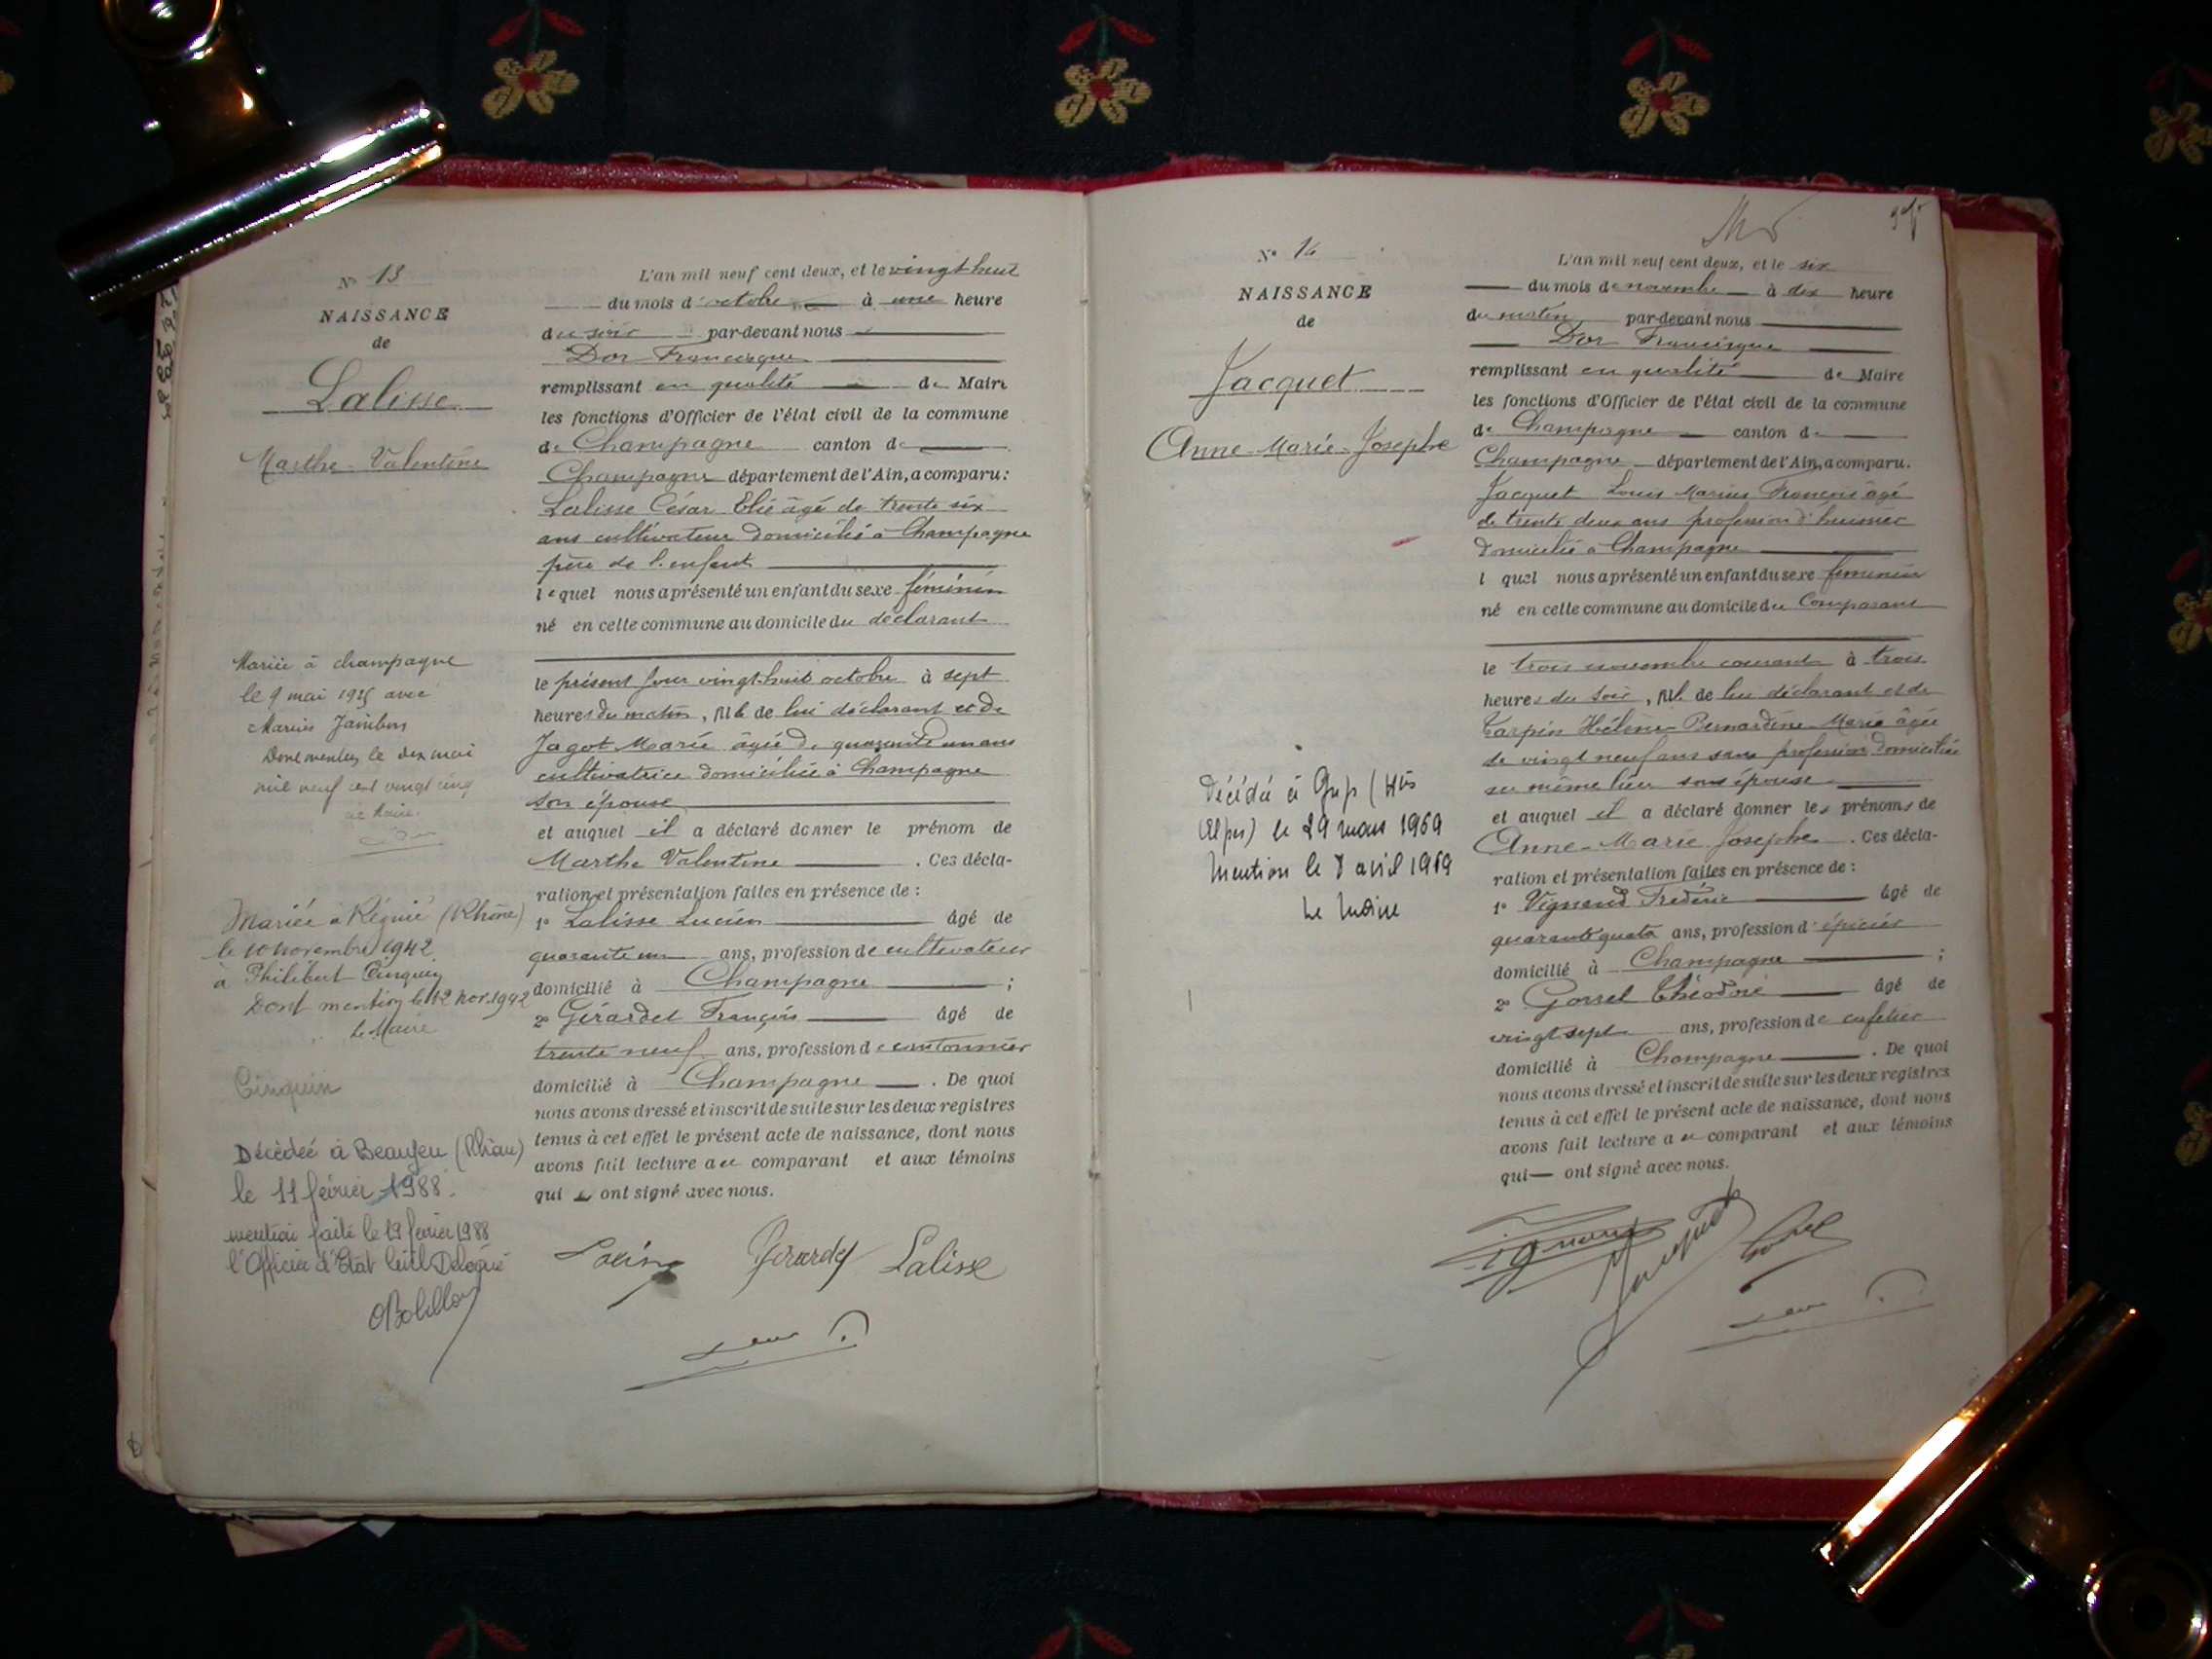 N° 13
NAISSANCE
de
Lalisse
Marthe Valentine
Mariée à champagne
le 9 mai 1925 avec
Marius
Dont mention le dix mai
mil neuf cent vingt cinq
Le Maire.
Mariée à Régnié (Rhône)
le 10 novembre 1942
à Philibert Cinquin
Dont mention le 12 nov. 1942
Le Maire
Cinquin
Décédée à Beaujeu (Rhône)
le 11 février 1988.
mention faite le 19 février 1988
l'Officier d'Etat Civil Délégué
L'an mil neuf cent deux, et le vingt huit
du mois d'octobre à une heure
du soir par-devant nous
Dor Francisque
remplissant en qualité de Maire
les fonctions d'Officier de l'état civil de la commune
de Champagne canton de
Champagne département de l'Ain, a comparu:
Lalisse César Elie âgé de trente six
ans cultivateur domicilié à Champagne
père de l'enfant
lequel nous a présenté un enfant du sexe féminin
né en cette commune au domicile du déclarant
le présent jour vingt-huit octobre à sept
heures du matin, fille de lui déclarant et de
Jagot Marie âgée de quarante un ans
cultivatrice domiciliée à Champagne
son épouse
et auquel il a déclaré donner le prénom de
Marthe Valentine . Ces décla-
ration et présentation faites en présence de :
1° Lalisse Lucien âgé de
quarante un ans, profession de cultivateur
domicilié à Champagne ;
2° Girardet François âgé de
trente neuf ans, profession de cantonnier
domicilié à Champagne . De quoi
nous avons dressé et inscrit de suite sur les deux registres
tenus à cet effet le présent acte de naissance, dont nous
avons fait lecture au comparant et aux témoins
qui ont signé avec nous.
Girardet Lalisse
N° 14
NAISSANCE
de
Jacquet
Anne-Marie-Josephe
Décédée à Gap (Htes
Alpes) le 29 mars 1969
Mention le 8 avril 1969
Le Maire
L'an mil neuf cent deux, et le six
du mois de novembre à dix heure
du matin par-devant nous
Dor Francisque
remplissant en qualité de Maire
les fonctions d'Officier de l'état civil de la commune
de Champagne canton de
Champagne département de l'Ain, a comparu.
Jacquet Louis Marius François âgé
de trente deux ans profession d'huissier
domicilié à Champagne
l quel nous a présenté un enfant du sexe féminin
né en cette commune au domicile du Comparant
le trois novembre courant à trois
heures du soir, fille de lui déclarant et de
Carpin Hélène Bernardine Marie âgée
de vingt neuf ans sans profession domiciliée
au même lieu son épouse
et auquel il a déclaré donner les prénoms de
Anne-Marie Josephe . Ces décla-
ration et présentation faites en présence de :
1° Vignand Frédéric âgé de
quarante quatre ans, profession d'épicier
domicilié à Champagne ;
2° Gorsel Théodore âgé de
vingt sept ans, profession de cafetier
domicilié à Champagne . De quoi
nous avons dressé et inscrit de suite sur les deux registres
tenus à cet effet le présent acte de naissance, dont nous
avons fait lecture au comparant et aux témoins
qui ont signé avec nous.
Vignand Jacquet